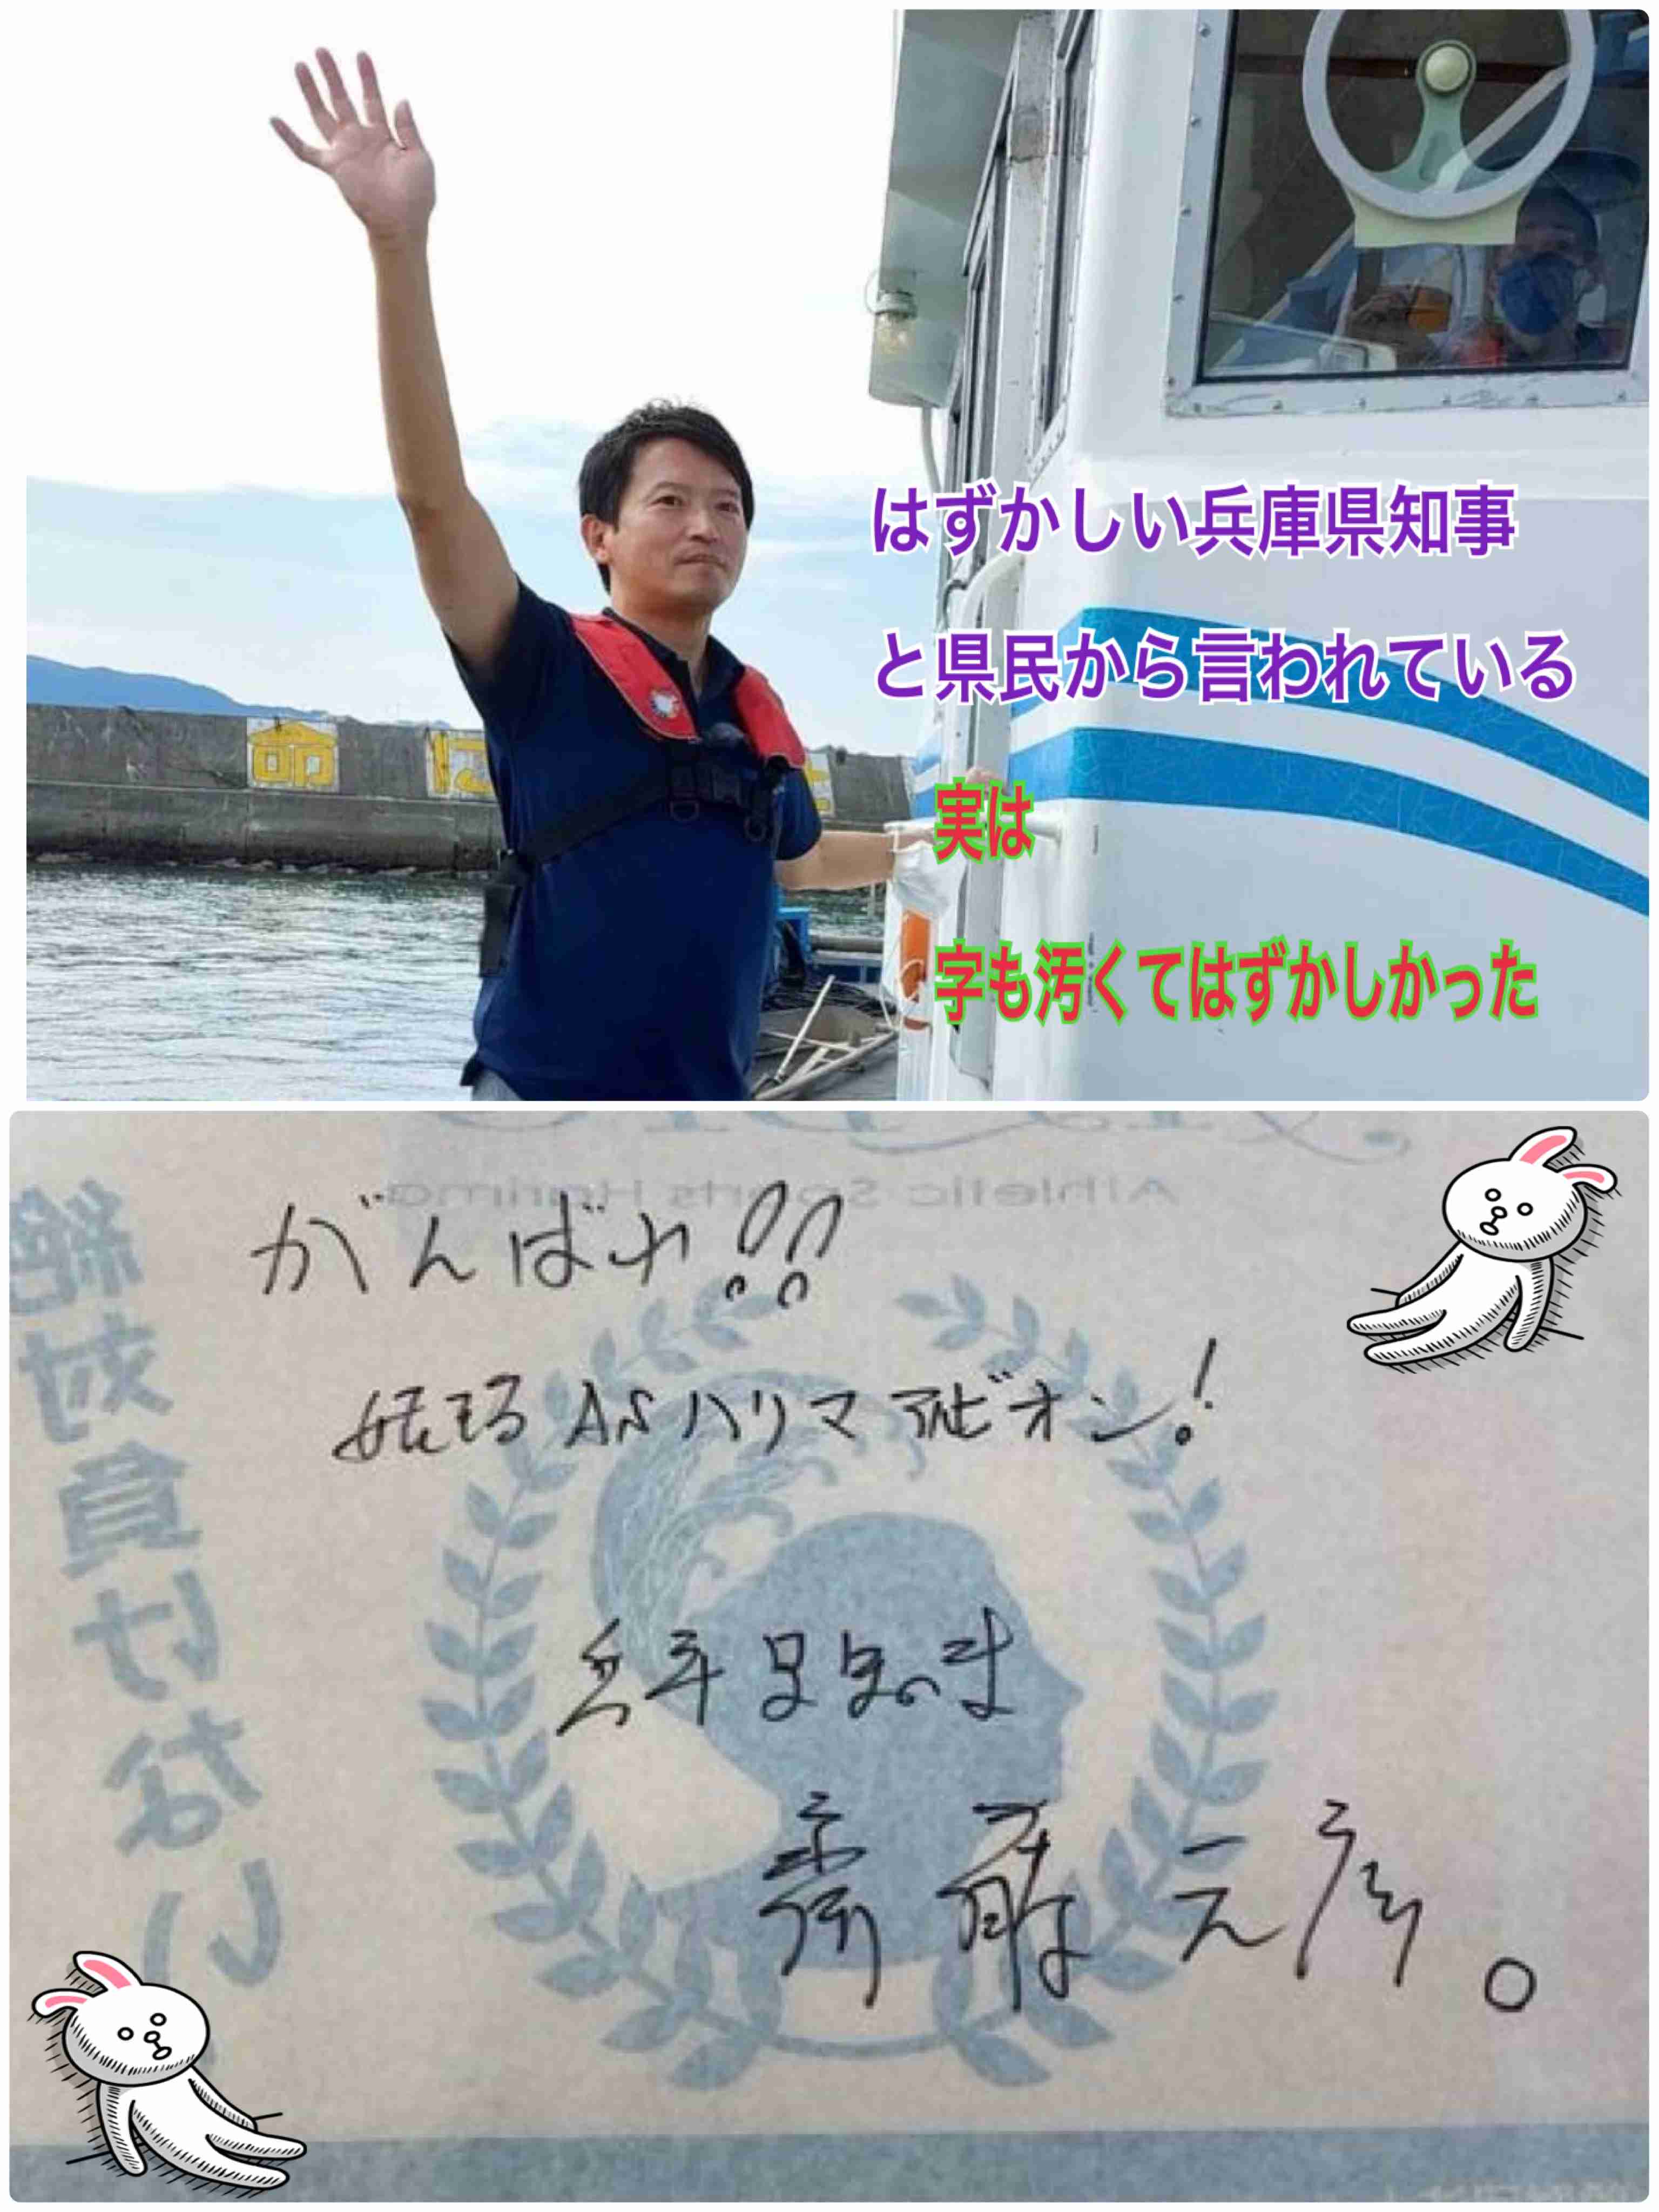 はずかしい兵庫県知事
と県民から言われている
実は
字も汚くてはずかしかった
命
Athletic Sports Harima
がんばれ!!
姫路ASハリマアルビオン!
兵庫県知事
齋藤元彦。